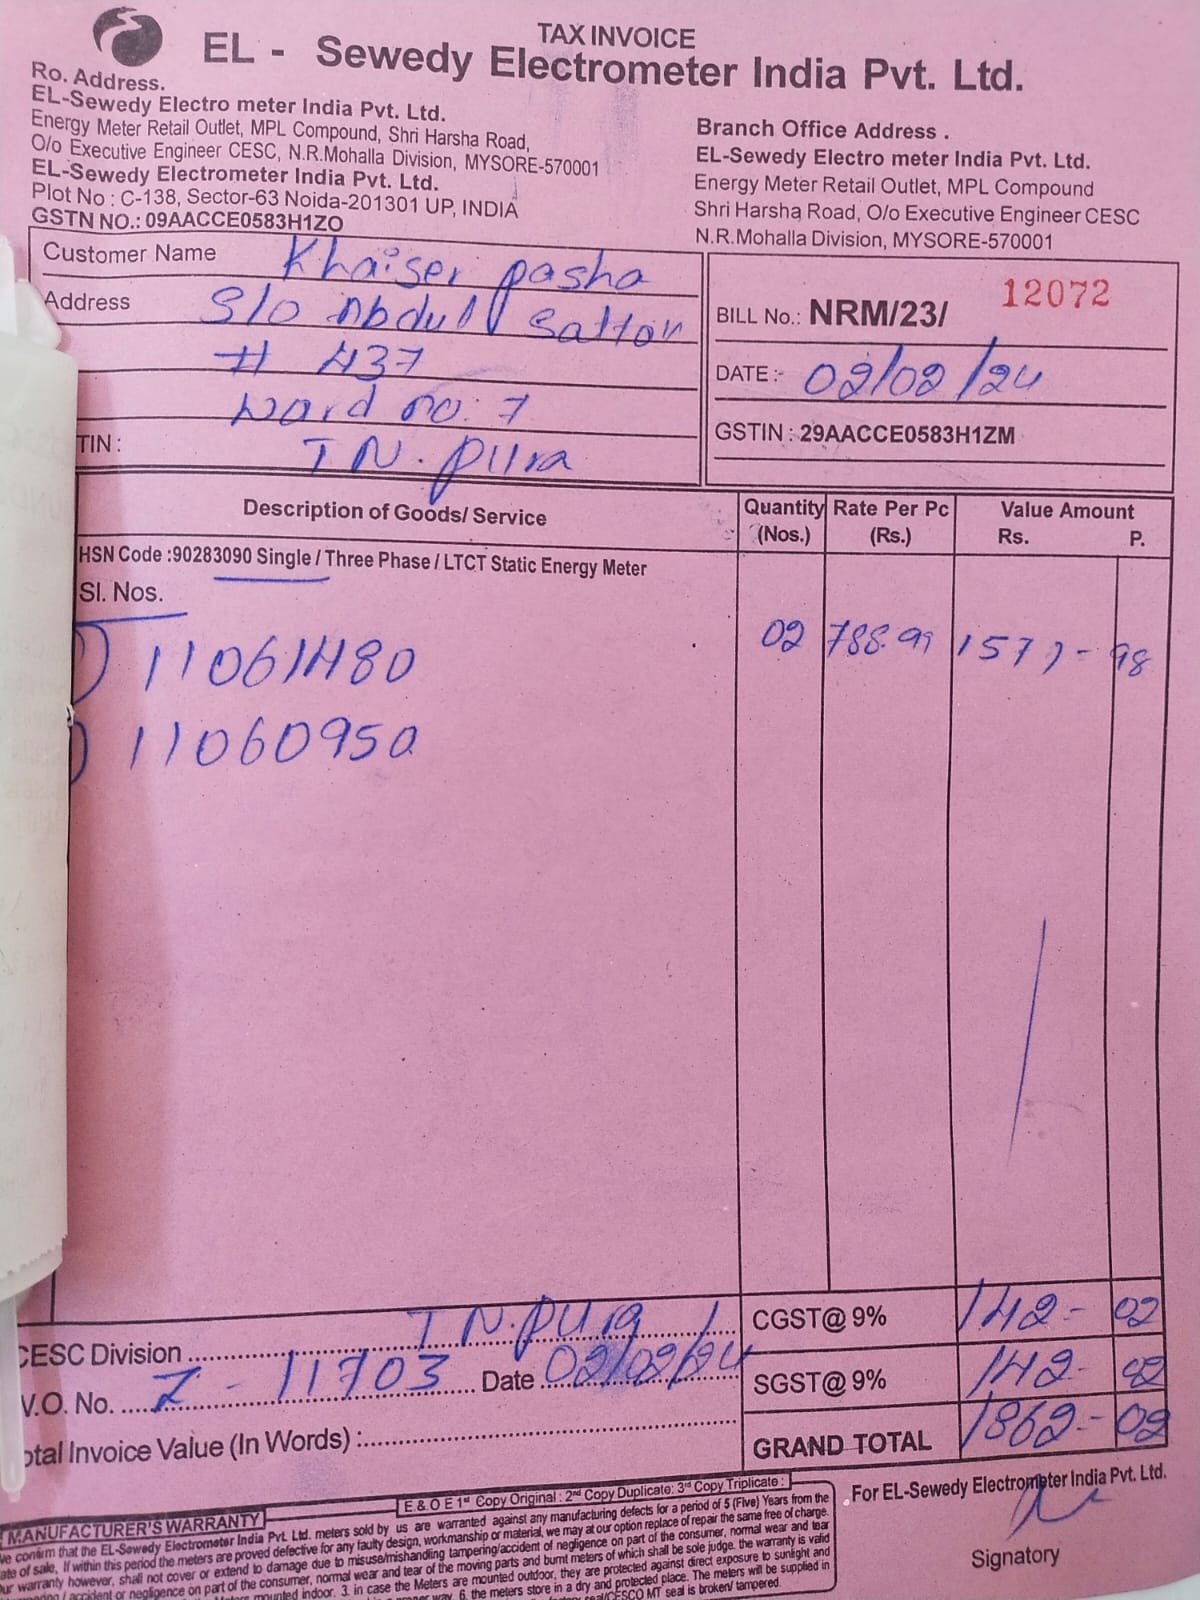 TAX INVOICE
EL - Sewedy Electrometer India Pvt. Ltd.
Ro. Address.
EL-Sewedy Electro meter India Pvt. Ltd.
Energy Meter Retail Outlet, MPL Compound, Shri Harsha Road,
O/o Executive Engineer CESC, N.R.Mohalla Division, MYSORE-570001
EL-Sewedy Electrometer India Pvt. Ltd.
Plot No : C-138, Sector-63 Noida-201301 UP, INDIA
GSTN NO.: 09AACCE0583H1ZO
Branch Office Address .
EL-Sewedy Electro meter India Pvt. Ltd.
Energy Meter Retail Outlet, MPL Compound
Shri Harsha Road, O/o Executive Engineer CESC
N.R.Mohalla Division, MYSORE-570001
Customer Name Khaiser pasha
Address S/o Abdul Sattar
# 437
Ward no: 7
TIN : T N. pura
BILL No.: NRM/23/ 12072
DATE :- 02/02/24
GSTIN : 29AACCE0583H1ZM
Description of Goods/ Service Quantity (Nos.) Rate Per Pc (Rs.) Value Amount Rs. P.
HSN Code :90283090 Single / Three Phase / LTCT Static Energy Meter
Sl. Nos.
11061480 02 788.99 1577 - 98
11060950
CESC Division T N. pura
V.O. No. Z - 11703 Date 02/02/24
otal Invoice Value (In Words) :
CGST@ 9% 142 - 02
SGST@ 9% 142 - 02
GRAND TOTAL 1862 - 02
E & O E 1st Copy Original : 2nd Copy Duplicate: 3rd Copy Triplicate :
For EL-Sewedy Electrometer India Pvt. Ltd.
Signatory
MANUFACTURER'S WARRANTY
We confirm that the EL-Sewedy Electrometer India Pvt. Ltd. meters sold by us are warranted against any manufacturing defects for a period of 5 (Five) Years from the
ate of sale, If within this period the meters are proved defective for any faulty design, workmanship or material, we may at our option replace of repair the same free of charge.
ur warranty however, shall not cover or extend to damage due to misuse/mishandling tampering/accident of negligence on part of the consumer, normal wear and tear
accident or negligence on part of the consumer, normal wear and tear of the moving parts and burnt meters of which shall be sole judge. the warranty is valid
mounted indoor. 3. in case the Meters are mounted outdoor, they are protected against direct exposure to sunlight and
way. 6. the meters store in a dry and protected place. The meters will be supplied in
seal/CESCO MT seal is broken/ tampered.